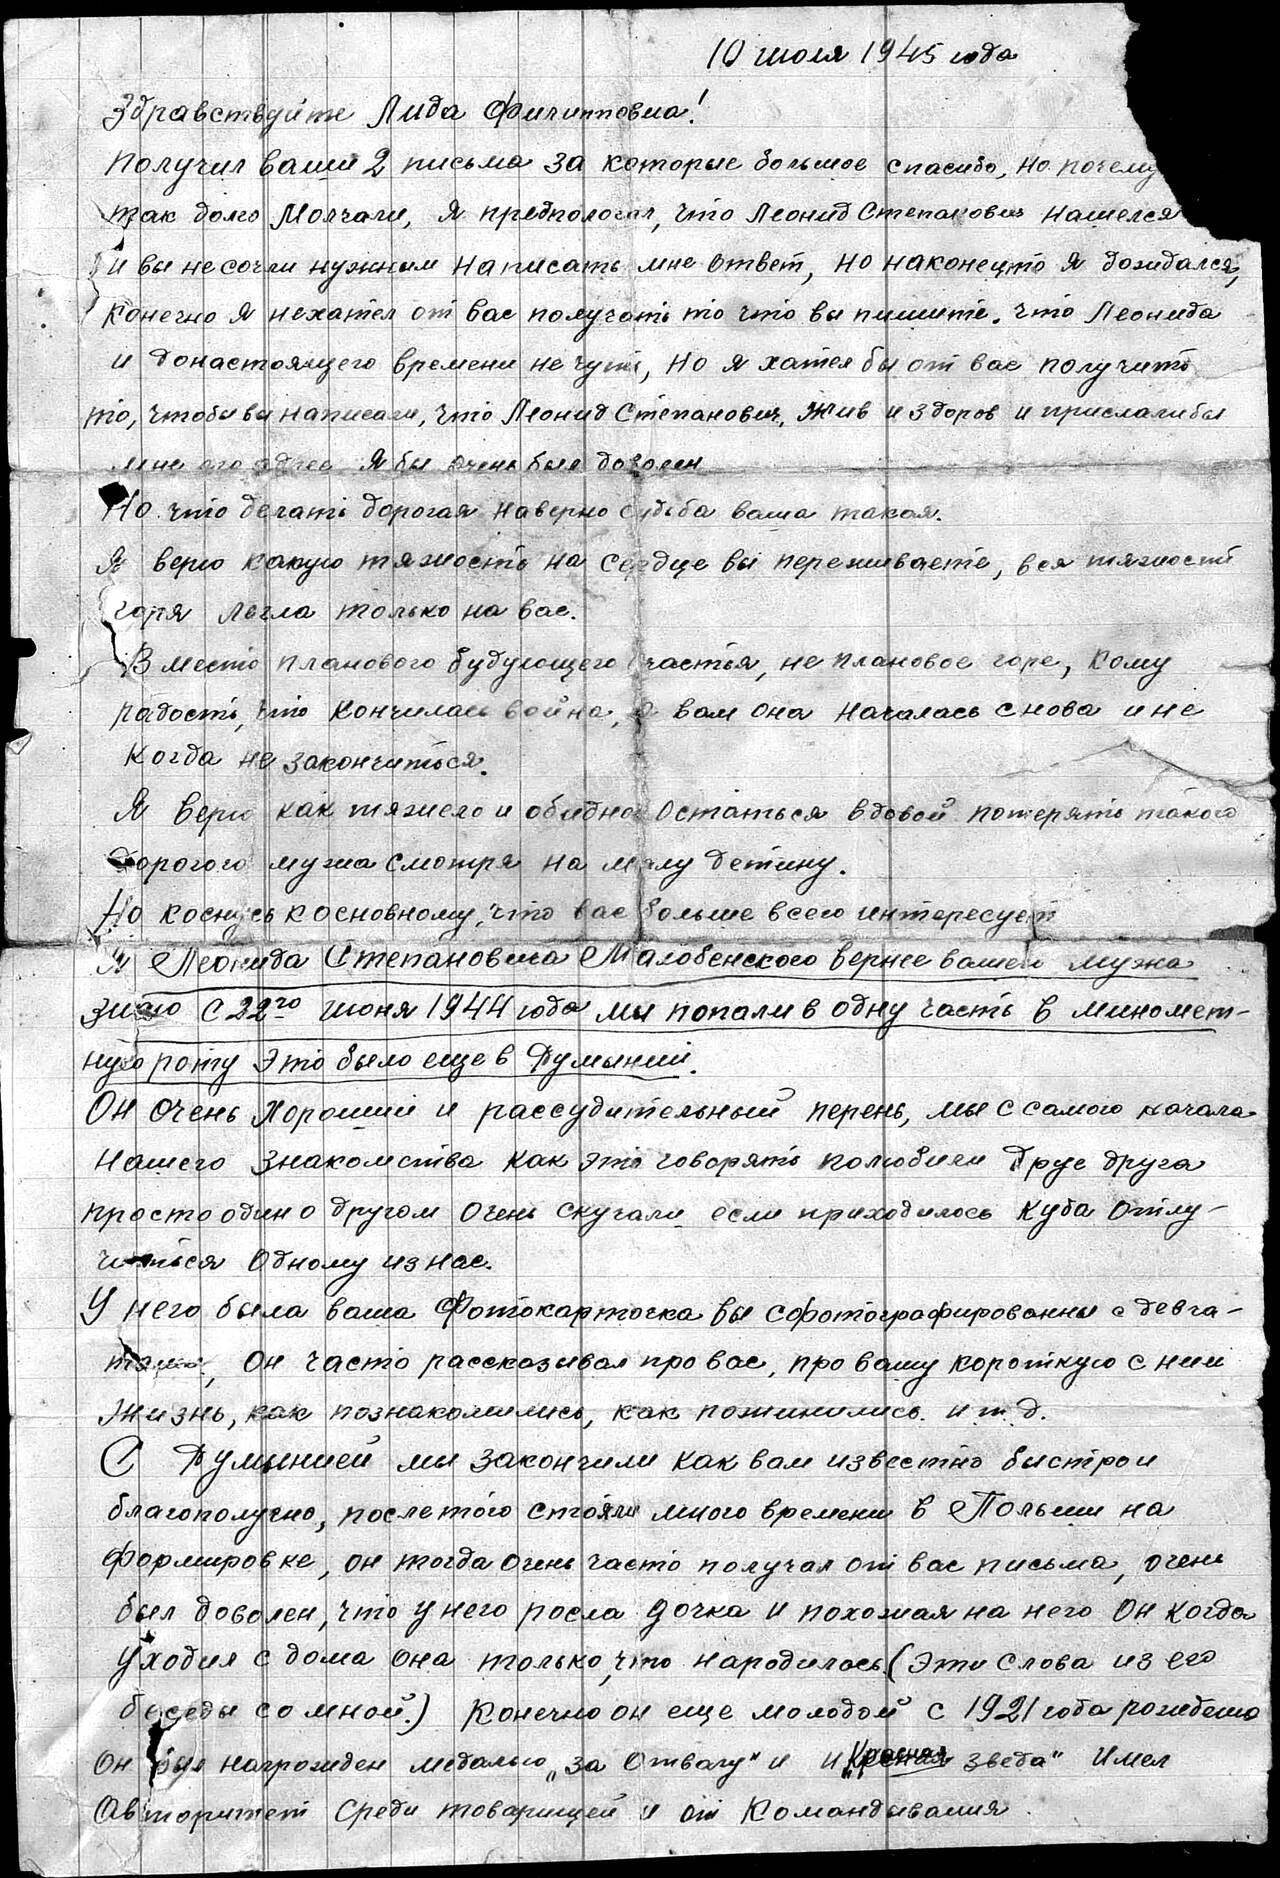 10 июля 1945 года
Здравствуйте Лида Филипповна!
Получил ваши 2 письма за которые большое спасибо, но почему
так долго молчали, я предпологал, что Леонид Степанович нашелся
и вы не сочли нужным написать мне ответ, но наконецто я дожидался,
конечно я нехател от вас получать то что вы пишите. что Леонида
и донастоящего времени не чуть, но я хател бы от вас получить
то, чтобы вы написали, что Леонид Степанович, жив и здоров и прислалибы
мне его адрес я бы очень был доволен
Но что делать дорогая наверно судьба ваша такая.
Я верю какую тяжость на сердце вы переживаете, вся тяжость
горя легла только на вас.
Вместо планового будующего счастья, не плановое горе, кому
радость, что кончилась война, а вам она началась снова и не
когда не закончиться.
Я верю как тяжело и обидно остаться вдовой потерять такого
дорогого мужа смотря на малу детину.
Но коснусь косновному, что вас больше всего интересует
Я Леонида Степановича вернее вашего мужа
знаю с 22го июня 1944 года мы попали в одну часть в миномет-
ную роту это было еще в Румынии.
Он очень хороший и рассудительный перень, мы с самого начала
нашего знакомства как это говорять полюбили друг друга
просто один о другом очень скучали если приходилось куда отлу-
читься одному из нас.
У него была ваша фотокарточка вы сфотографированны с девча-
тами, он часто рассказывал про вас, про вашу короткую с ним
жизнь, как познакомились, как поженились. и т.д.
С Румынией мы закончили как вам известно быстро и
благополучно, послетого стояли много времени в Польши на
формировке, он тогда очень часто получал от вас письма, очень
был доволен, что у него росла дочка и похожая на него он когда
уходил с дома она только, что народилась (эти слова из его
беседы со мной.) конечно он еще молодой с 1921 года рождения
Он был награжден медалью „за отвагу" и и „Красная зведа" имел
Авторитет среди товарищей и от Командывания.